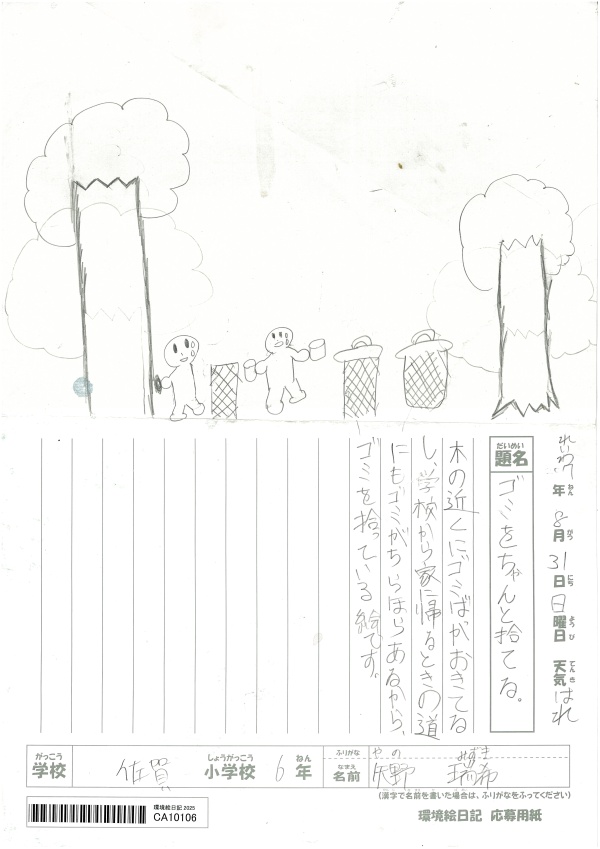 れいわ7年 8月 31日 日曜日 天気 はれ
ねん がつ にち ようび てんき
だいめい
題名
ゴミをちゃんと捨てる。
木の近くにゴミばがおきてる
し、学校から家に帰るときの道
にもゴミがちらほらあるから、
ゴミを拾っている絵です。
がっこう しょうがっこう ねん
学校 佐賀 小学校 6年
ふりがな やの みずき
なまえ
名前 矢野 瑞希
(漢字で名前を書いた場合は、ふりがなをふってください)
環境絵日記 2025
CA10106
環境絵日記 応募用紙